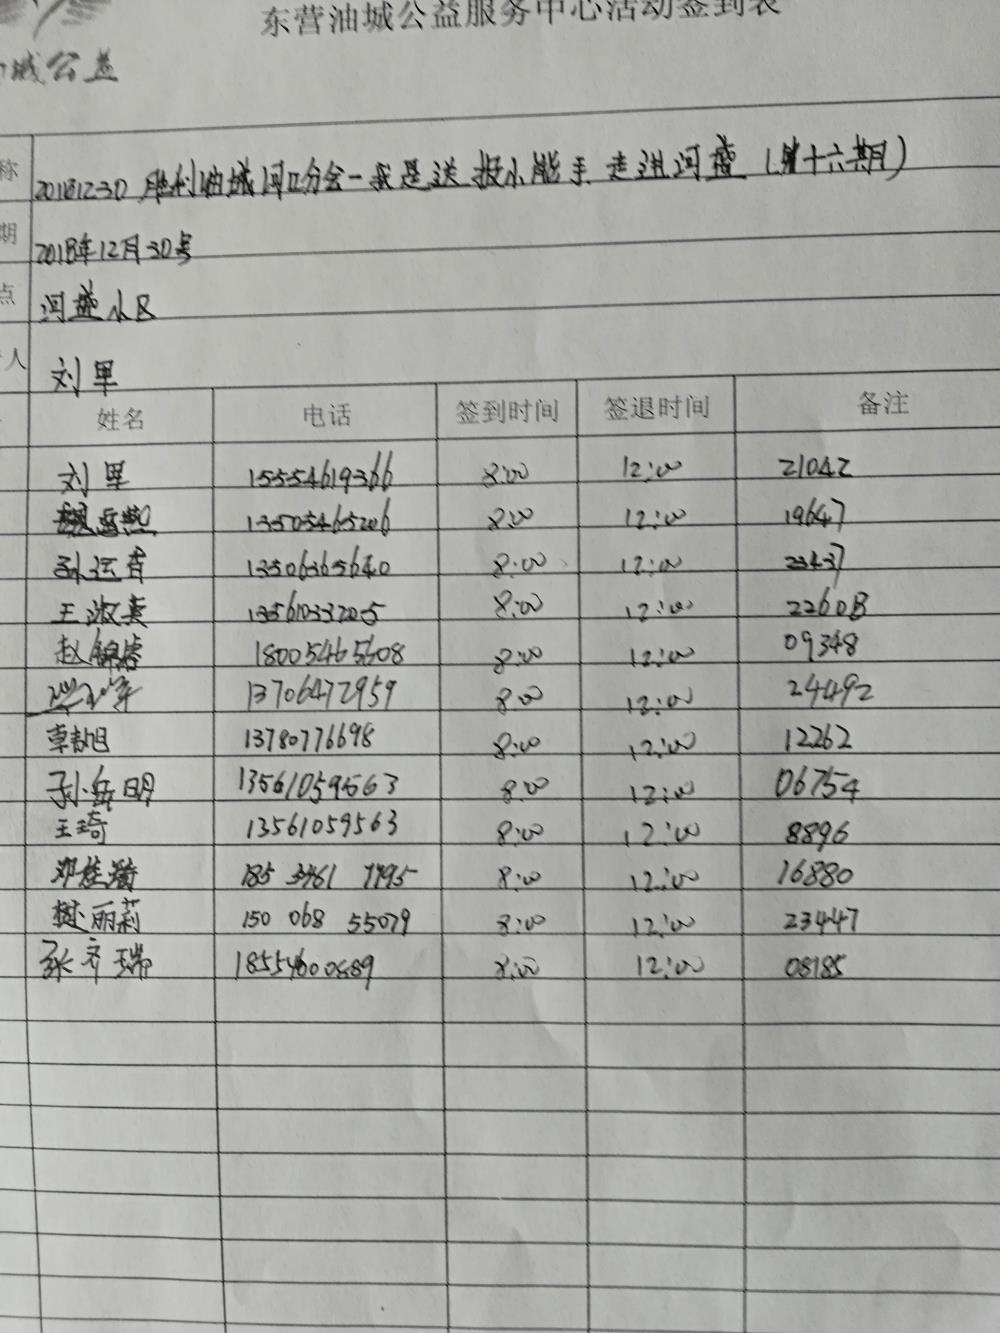 东营油城公益服务中心活动签到表
城公益
称 20181230 胜利油城河口分会-我是送报小能手 走进河盛（第十六期）
期 2018年12月30号
点 河盛小区
人 刘里
姓名 电话 签到时间 签退时间 备注
刘里 15554619366 8:00 12:00 21042
13505465206 8:00 12:00 19647
孙运香 13506365640 8:00 12:00 23437
王淑真 13561033205 8:00 12:00 22608
赵锦蓉 18005465608 8:00 12:00 09348
13706472959 8:00 12:00 24492
章喆旭 13780776698 8:00 12:00 12262
孙岳明 13561059563 8:00 12:00 06754
王琦 13561059563 8:00 12:00 8896
邓桂 185 3461 7795 8:00 12:00 16880
丽莉 150 068 55079 8:00 12:00 23447
张齐瑞 18554600689 8:00 12:00 08185